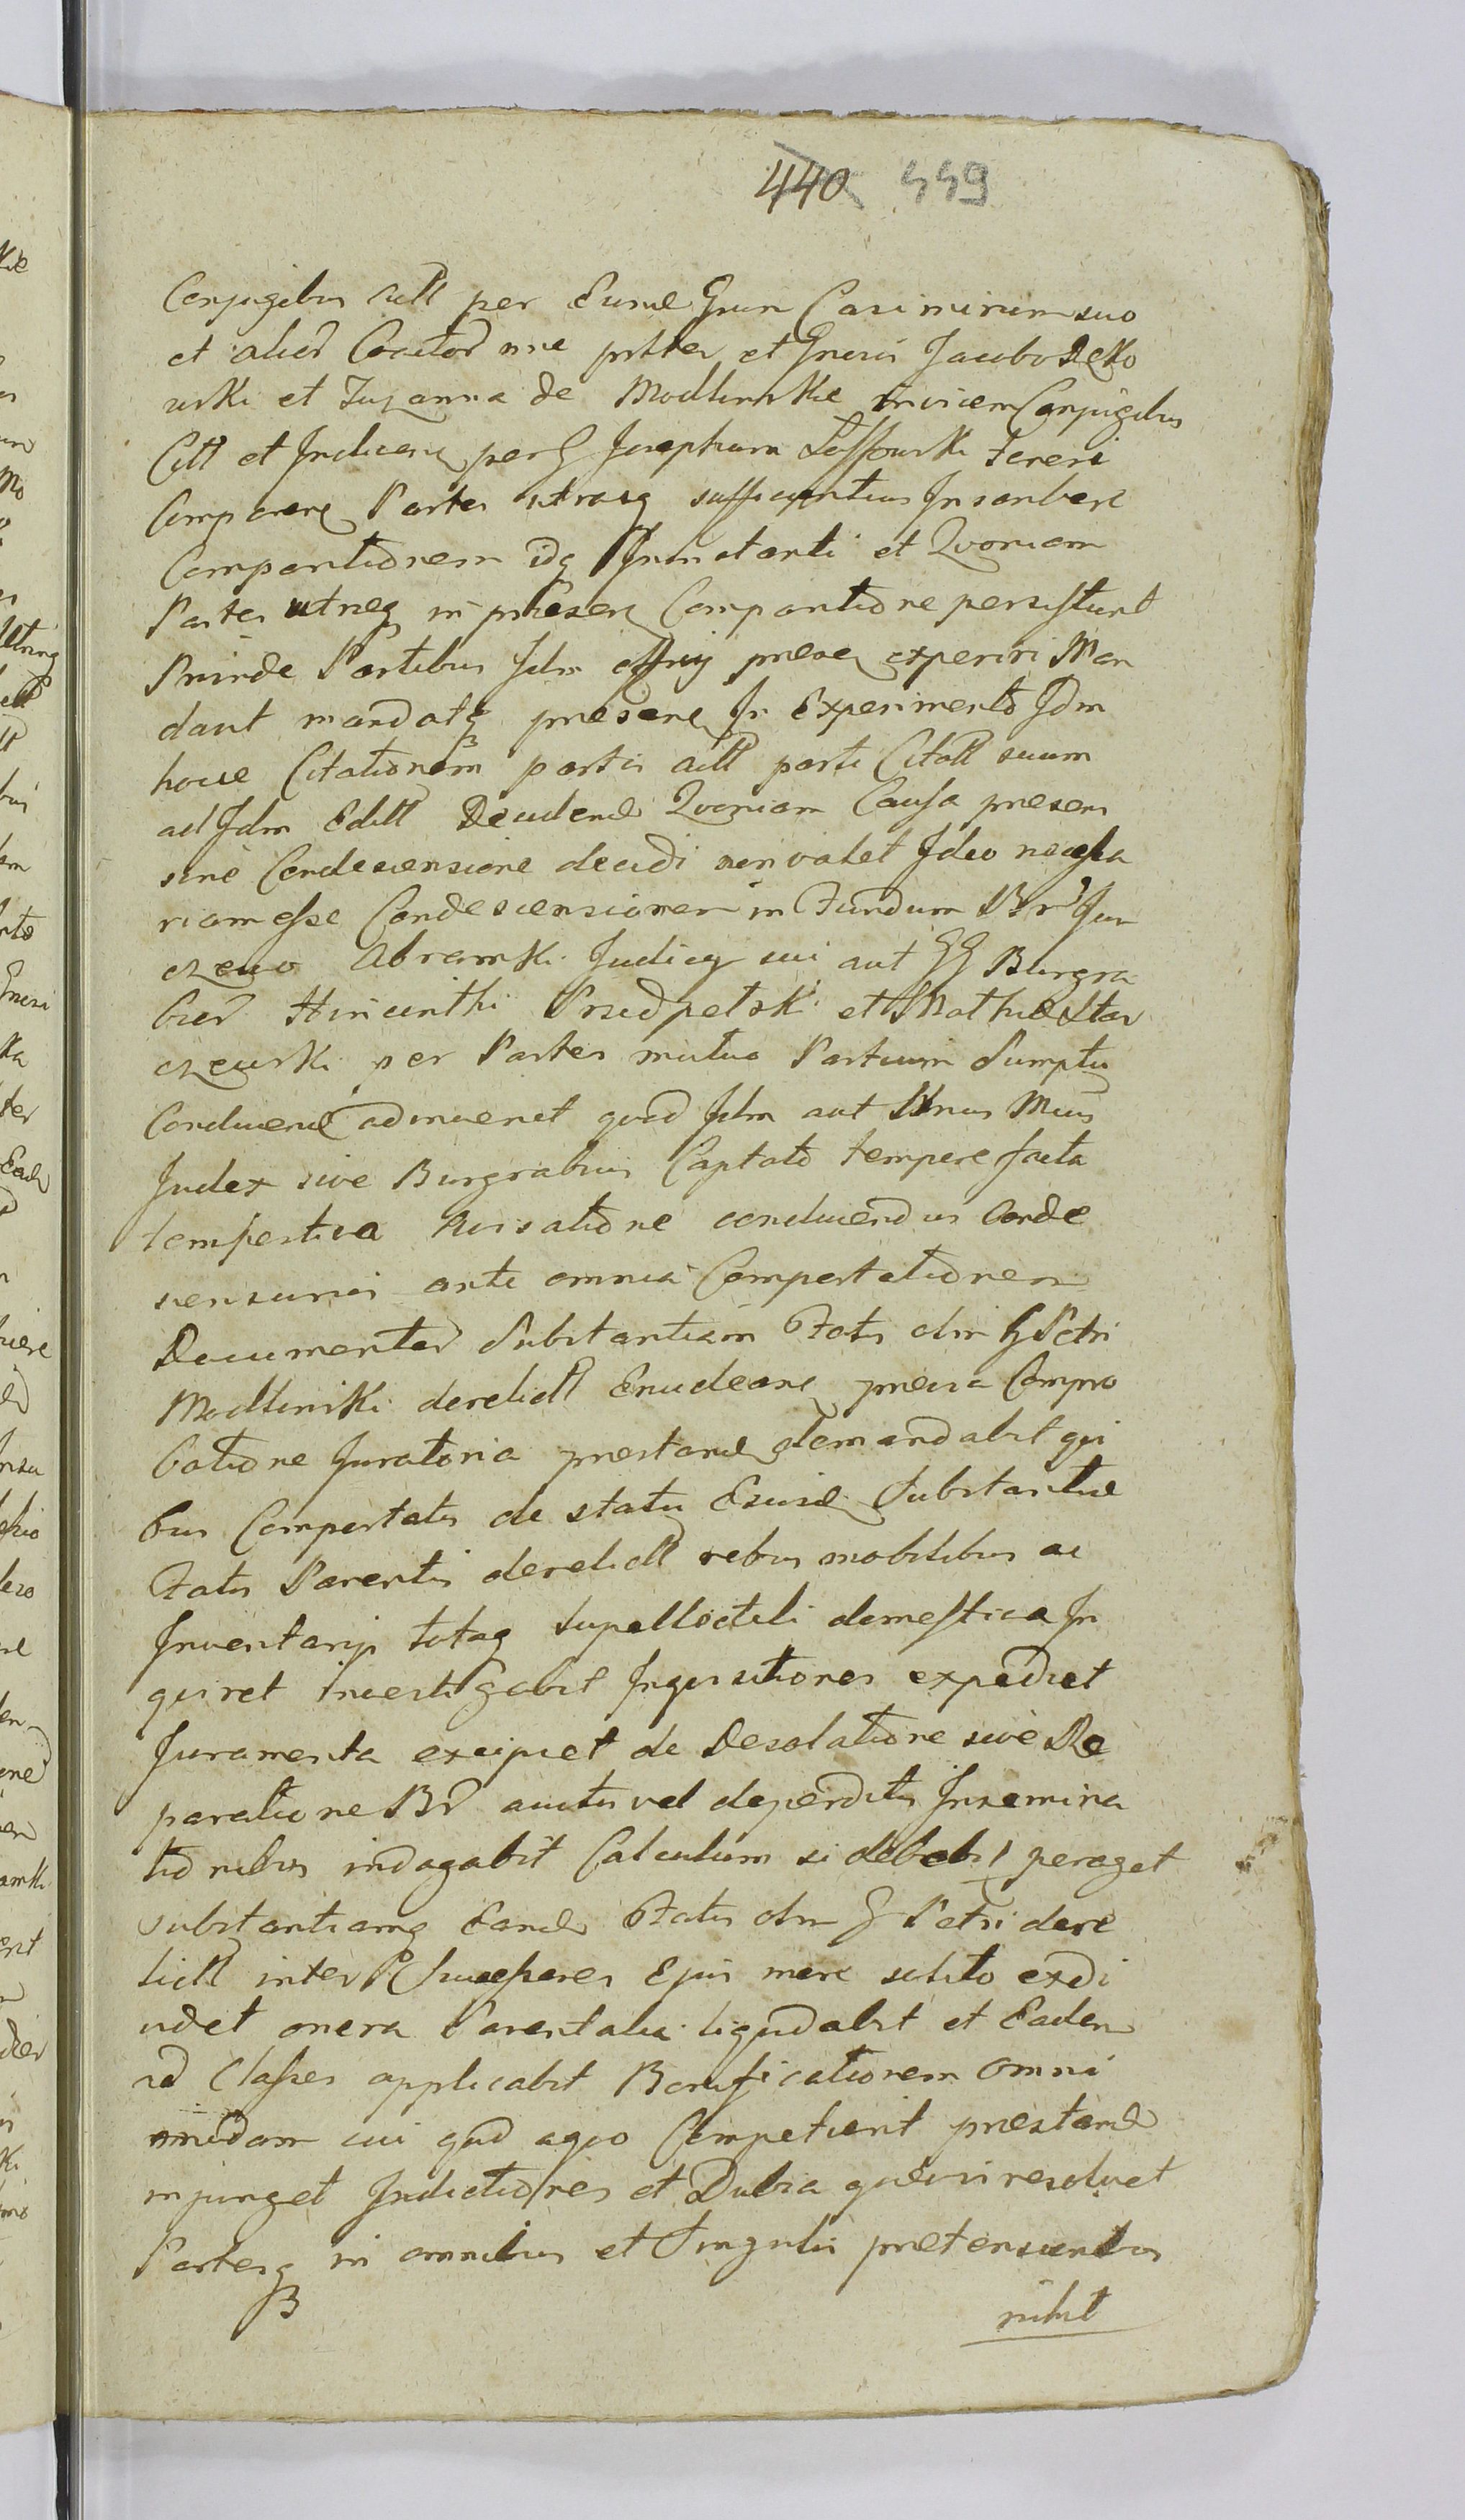 440 449
Conjugibus Actt per Eund Gnum Casimirum suo
et alior Coactor nne prtter et Gneris Jacobo Deko
wski et Zuzanna de Modlinskie invicem Conjugibus
Citt et Judicial per G Josephum fereri
Comparen Partes utrasq sufficientius Inscribere
Comportationem idq Innotanti et Qvoniam
Partes utreq in presen Comportatione persistunt
Proinde Partibus Jdm offcij presen experiri Man
dant mandatq presene In Experimento Jdm
hocce Citationem partis actt parti Citatt suum
ad Jdm Editt Decidend Qvoniam Causa presens
sine Condescensione decidi non valet Ideo necessa
riam esse Condescensionem in Fundum Bnr Jur
czewo Abramski Judicy sui aut GG Burgra
bior Hiacinthi et Mathie Star
czewski per Partes mutuo Partium Sumptu
Conducend adinvenit quod Jdm aut Mnus Mius
Judex sive Burgrabius Captato tempore facta
tempestiva Avisatione conducendus Conde
scensurus ante omnia Comportationem
Documentor Substantiam Fatis olm G Petri
Modlinski derelictt Enucleare previa Compro
batione Juratoria prestand demandabit qvi
bus Comportatis de statu Ejusd Substantiae
Fatis Parentis derelictt rebus mobilibus ac
Inventarijs totaq supellectili domestica In
quiret investigabit Inquisitiones expediet
Juramenta excipiet de Desolatione sive Re
paratione Br auctis vel deperditis Insemina
tionibus indagabit Calculum si debebit peraget
substantiamq Eand Fatis olm G Petri dere
lictt inter Successores Ejus more solito exdi
videt onera Parentalia liquidabit et Eadem
ad Classes applicabit Bonificationem omni
modam cui quod a quo Competierit prestand
injunget Indictiones et Dubia quevis resolvet
Partesq in omnibus et Singulis pretensionibus
nihil